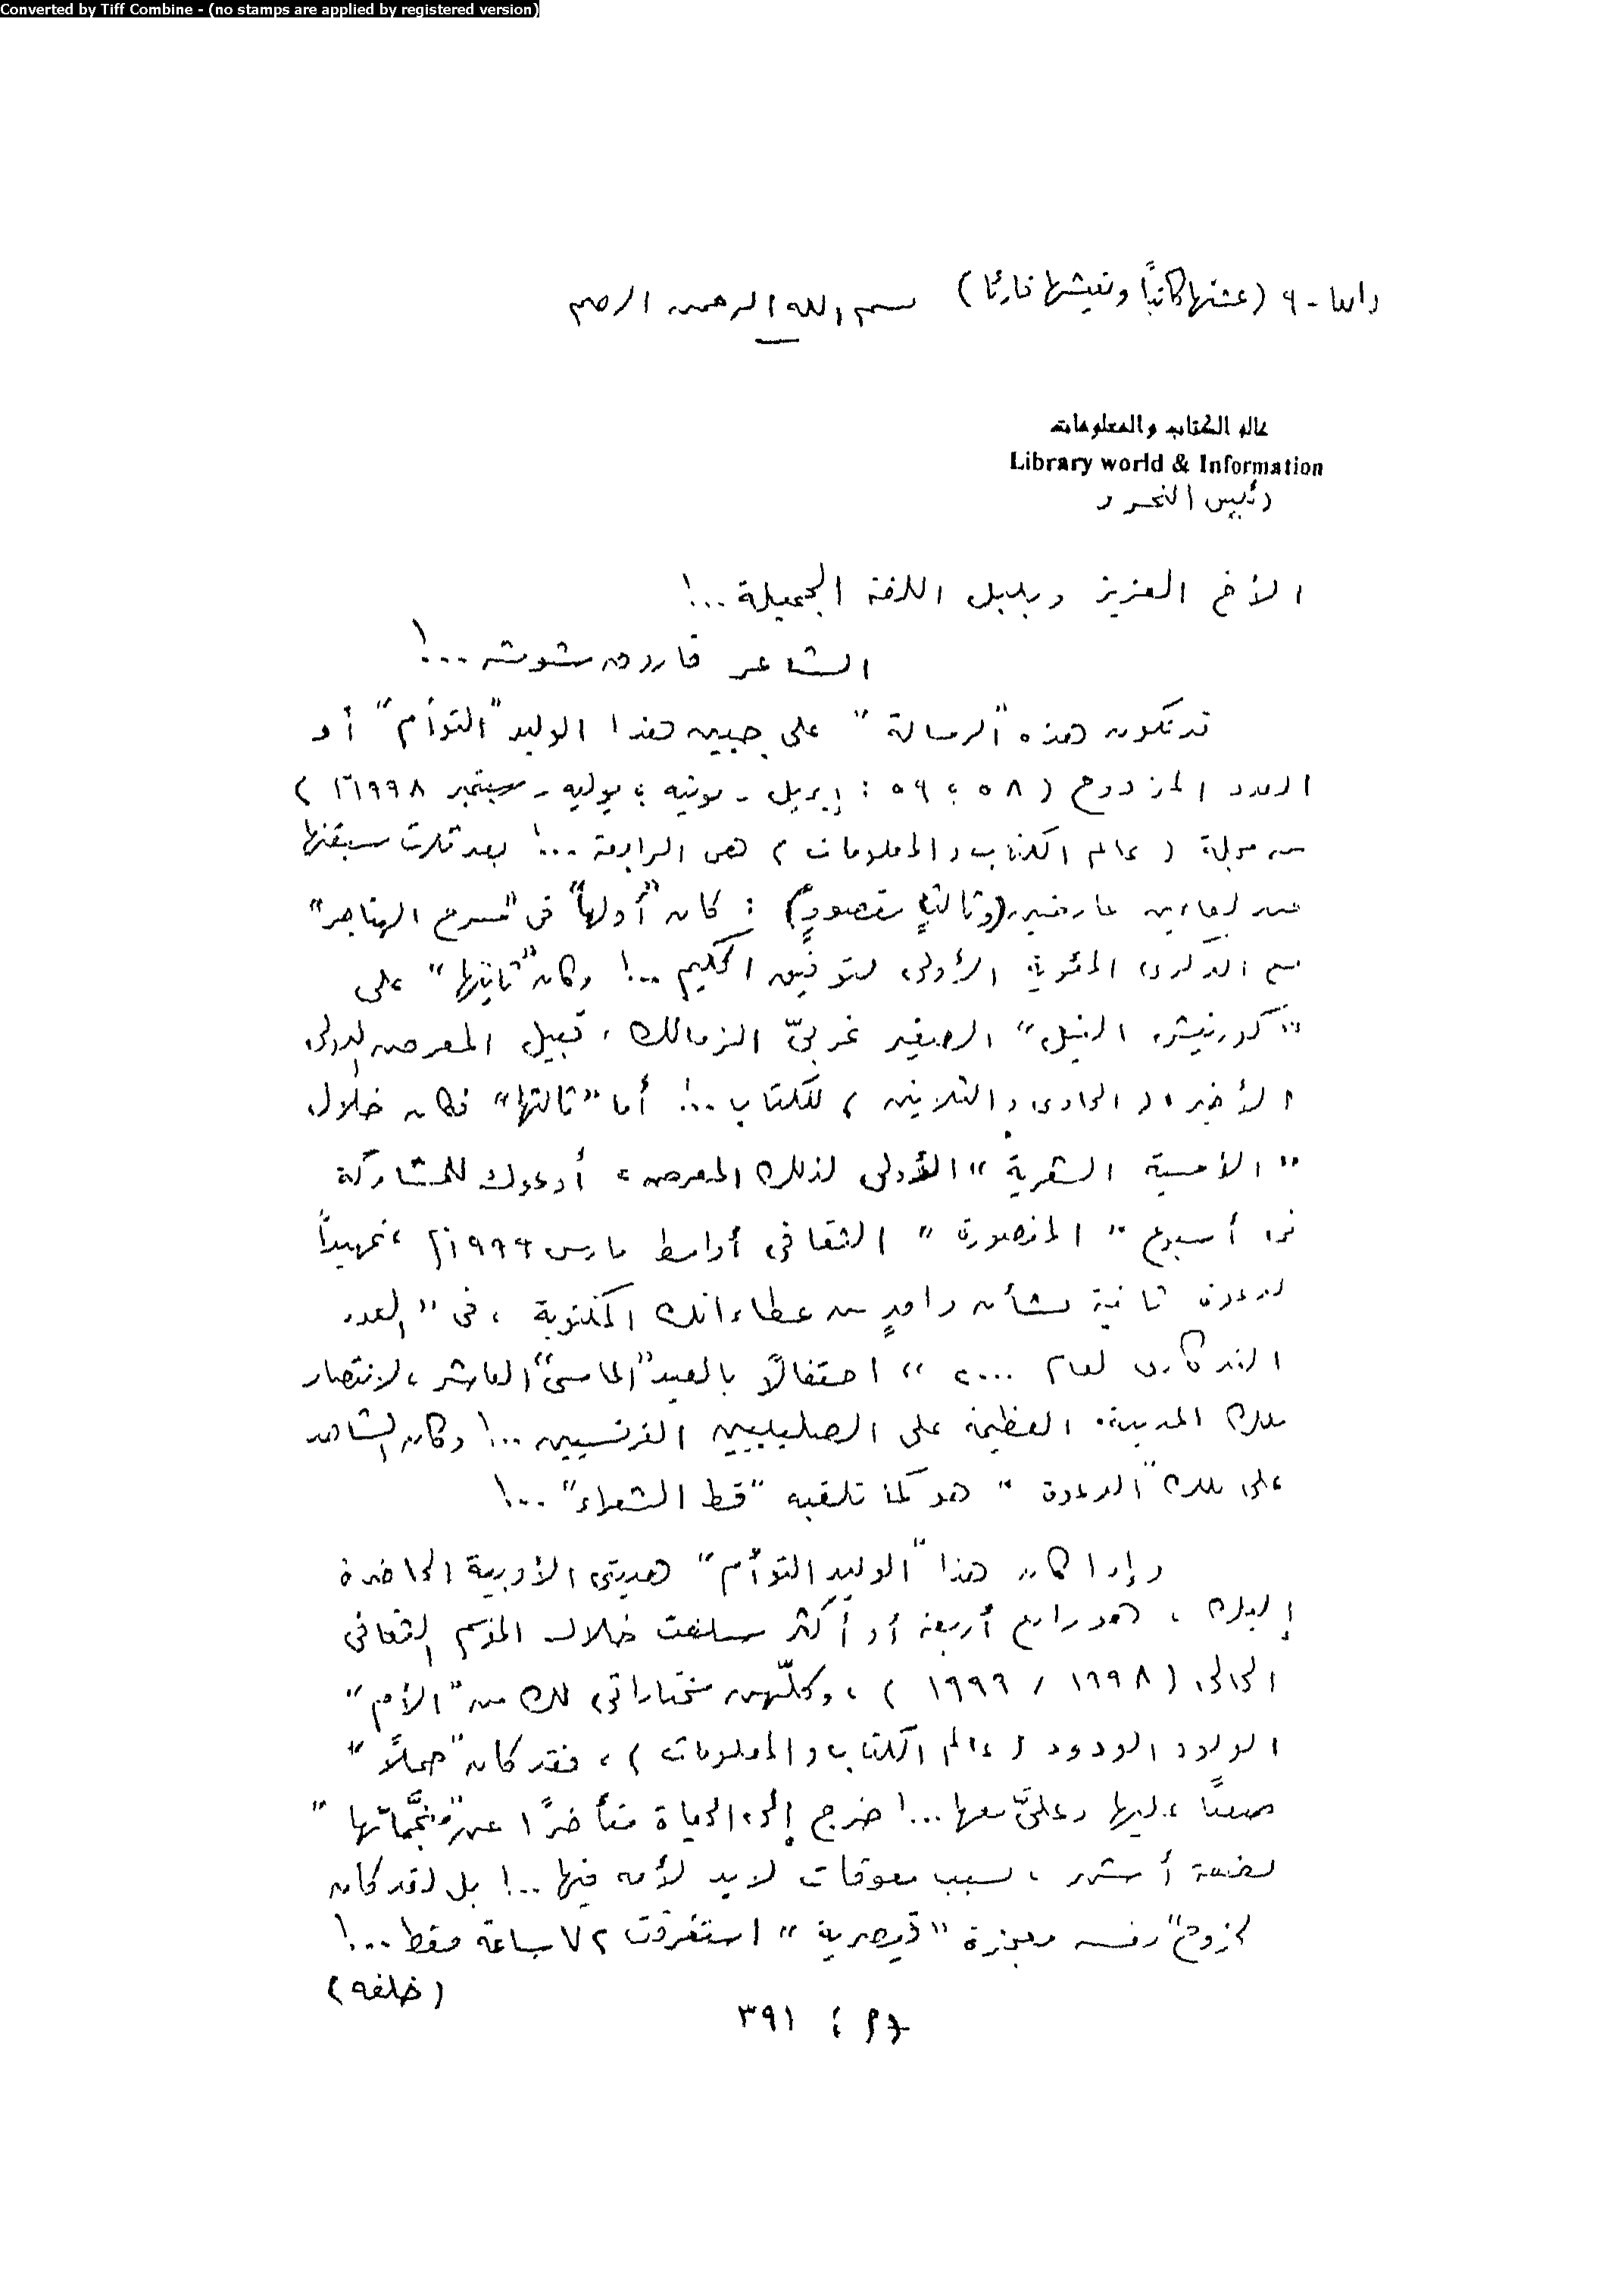 Converted by Tiff Combine - (no stamps are applied by registered version)
(عشتها كاتبًا وتعيشها قارئًا) بسم الله الرحمن الرحيم
عالم الكتاب والمعلومات
Library world & Information
رئيس التحرير
الأخ العزيز وبلبل اللغة الجميلة ..!
الشاعر فاروق شوشه ...!
قد تكون هذه "الرسالة" على جبين هذا الوليد "التوأم" أو
العدد المزدوج (٥٨ ؛ ٥٩ : إبريل - يونيه ؛ يوليه - سبتمبر ١٩٩٨م)
من مجلة (عالم الكتاب والمعلومات) هى الرابعة ...! بعد ثلاث سبقتها
عبر لقاءين عارضين (وثالثٍ مقصودٍ) : كان "أولها" فى "مسرح الهناجر"
مع الذكرى المئوية الأولى لتوفيق الحكيم ..! وكان "ثانيتها" على
"كورنيش النيل" الصغير غربىّ الزمالك، قبيل المعرض الدولى
الأخير (الحادى والثلاثين) للكتاب ..! أما "ثالثتها" فكان خلال
"الأمسية الشعرية" الأولى لذلك المعرض، أدعوك للمشاركة
فى أسبوع "المنصورة" الثقافى أواسط مارس ١٩٩٩م، تمهيداً
لدعوة ثانية بشأن واحدٍ من عطاءاتك المكتوبة، فى "العدد
التذكارى لعام ٢٠٠٠" احتفالاً بالعيد "الماسى" العاشر، لانتصار
تلك المدينة العظيمة على الصليبيين الفرنسيين ..! وكان الشاهد
على تلك "الدعوة" هو كما تلقبه "قط الشعراء" ...!
وإذا كان هذا "الوليد التوأم" هديتى الأدبية الحاضرة
إليك، فهو رابع أربعة أو أكثر سلفت خلال الموسم الثقافى
الحالى (١٩٩٨ / ١٩٩٩)، وكلّهن مختاراتى لك من "الأم"
الولود الودود (عالم الكتاب والمعلومات)، فقد كان "حملاً"
صعبًا عليها وعلىَّ معها ...! خرج إلى الحياة متأخرًا عن "منجَّماتها"
بضعة أشهر، بسبب معوقات لا يد لأمه فيها ..! بل لقد كان
"خروج" نفسه معجزة "قيصرية" استغرقت ٧٢ ساعة فقط ...!
(خلفه)
٣٩١